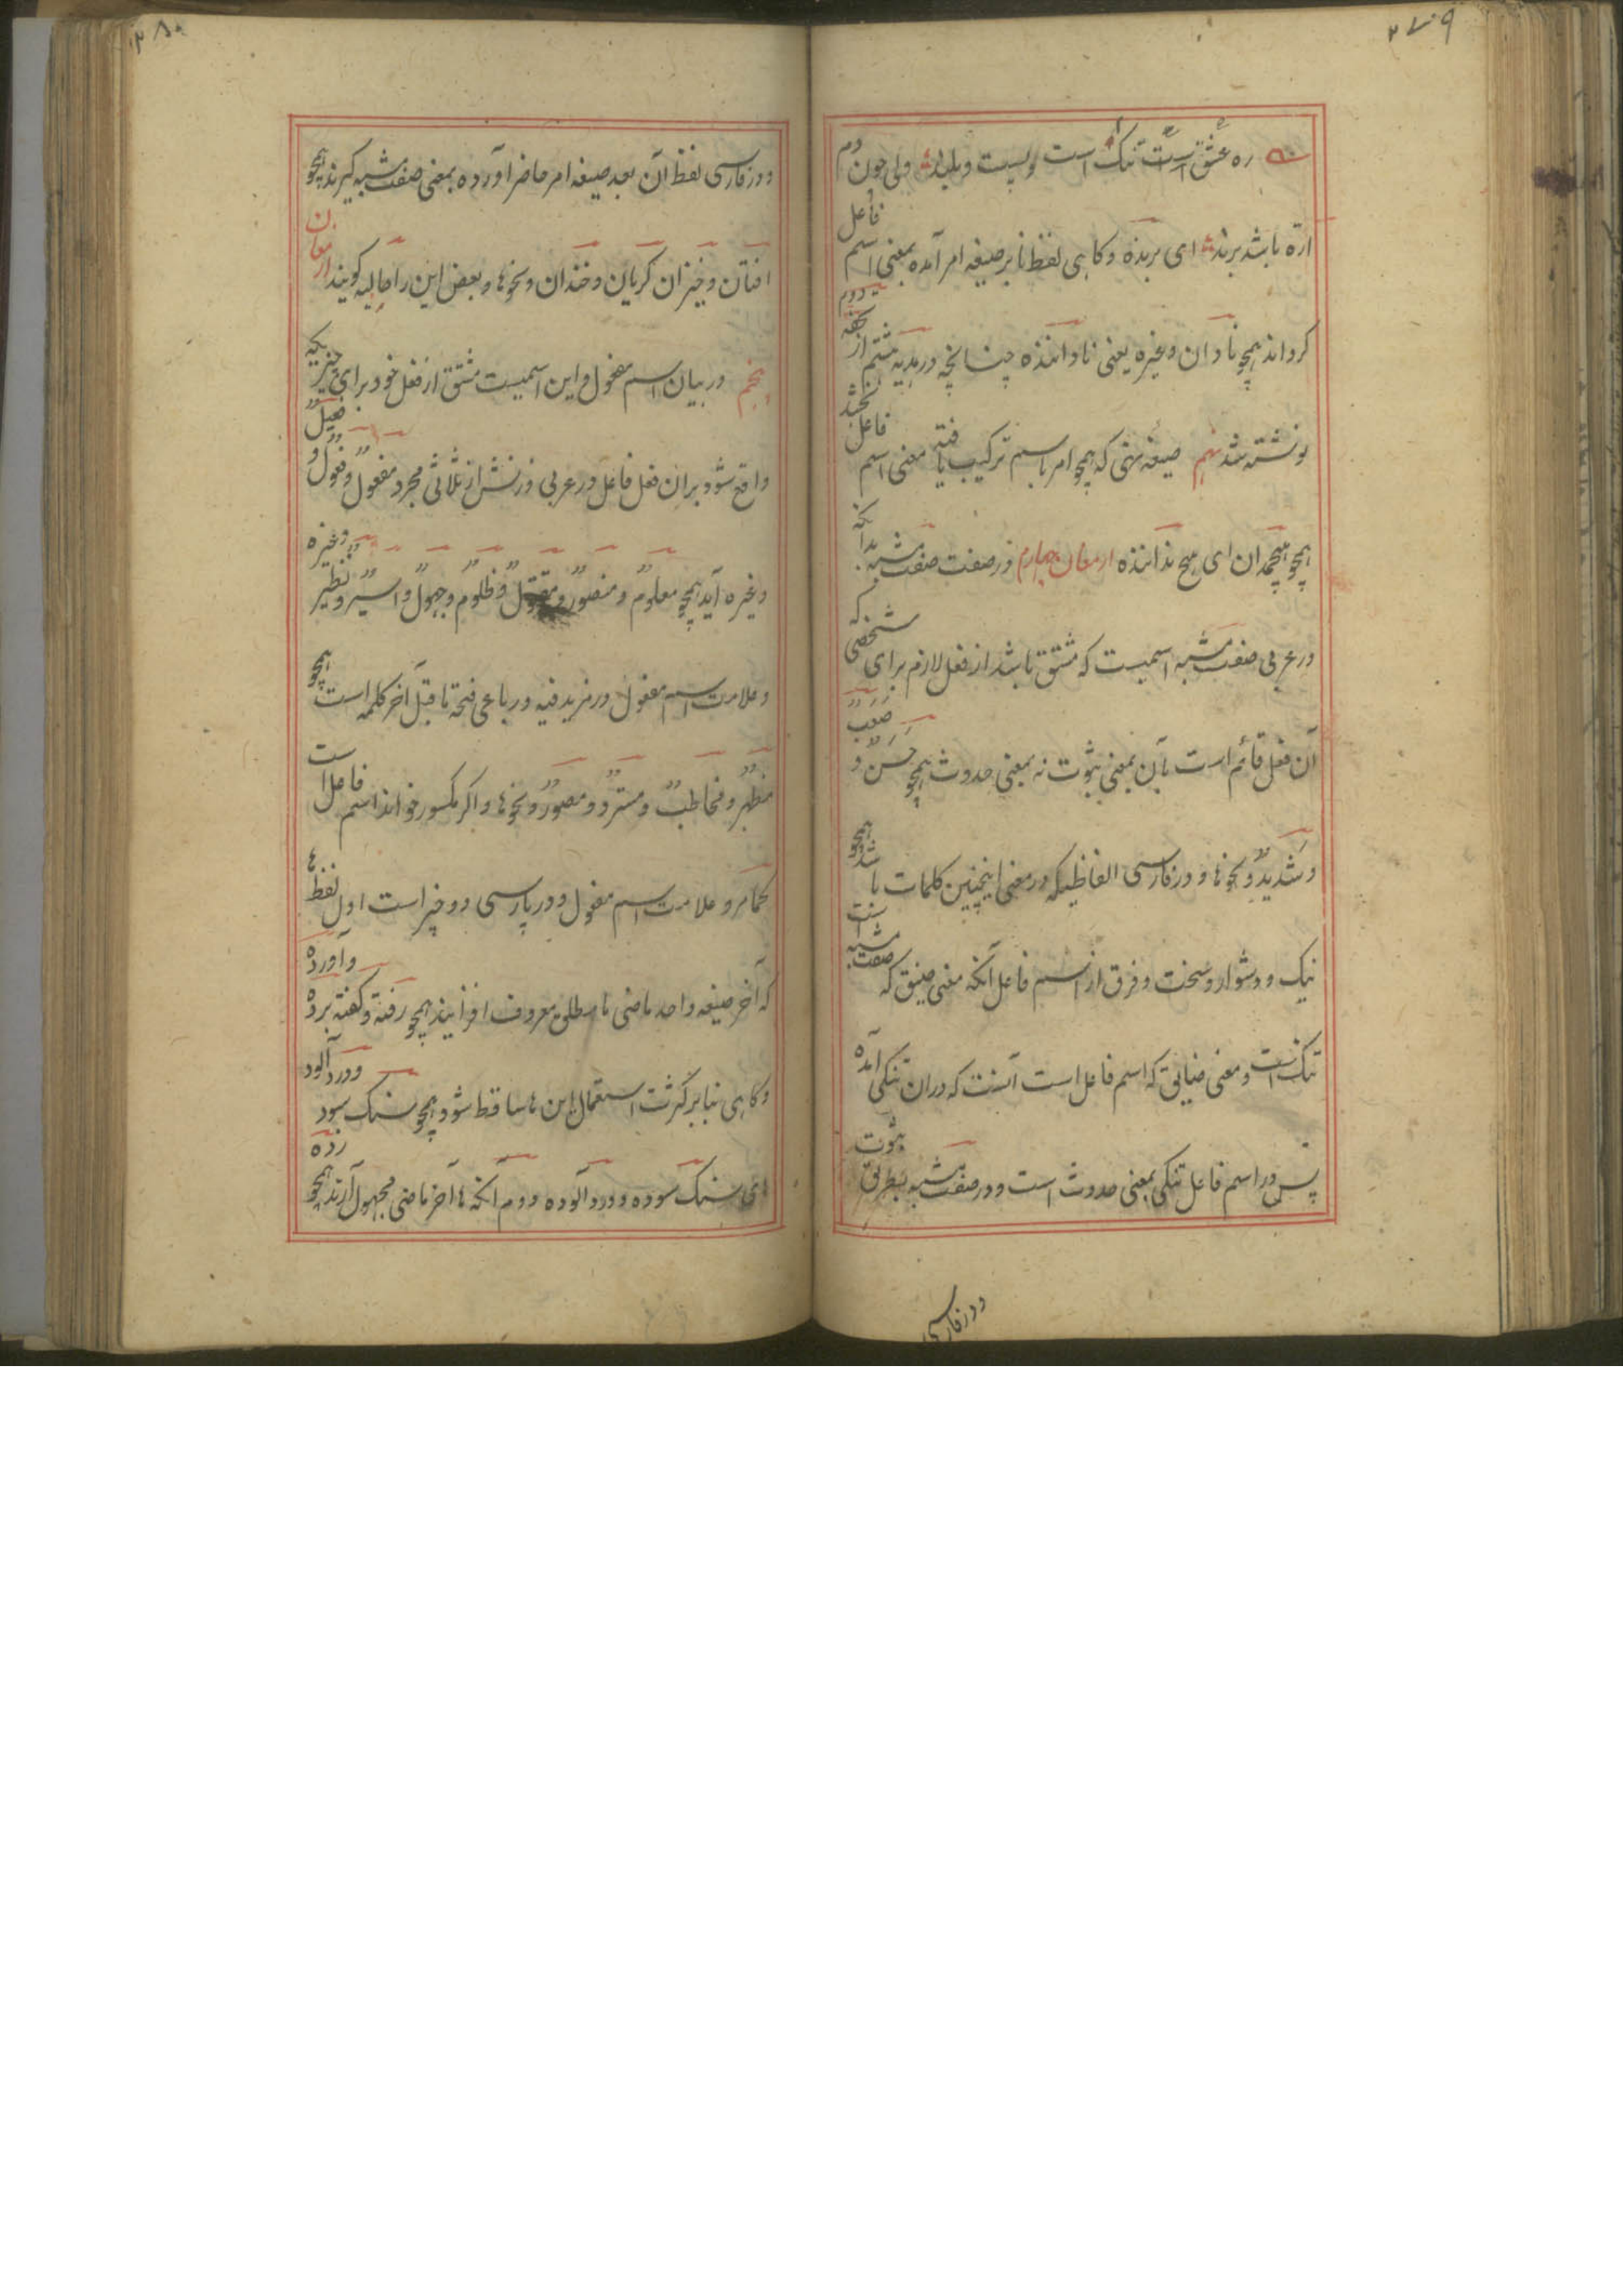 ۲۷۹
ره عشق است تنک است و پست و بلند ولی چون دم
ارّه باشد برنده ای برنده و کاهی لفظ نا بر صیغه امر آمده بمعنی اسم فاعل
کرداند همچو نادان و غیره یعنی نا داننده چنانچه در هدیه ششم از تحفه دوم
نوشته شد نهم صیغه نهی که همچو امر باسم ترکیب یافته معنی اسم فاعل بخشد
همچو هیچمدان ای هیچ نداننده ارمغان چهارم در صفت صفت مشبه بدانکه
در عربی صفت مشبه اسمیست که مشتق باشد از فعل لازم برای شخصی که
آن فعل قائم است بآن بمعنی ثبوت نه بمعنی حدوث همچو حَسَنٌ و صَعبٌ
و شَدیدٌ و نحوها و در فارسی الفاظیکه در معنی اینچنین کلمات باشد همچو
نیک و دشوار و سخت و فرق از اسم فاعل آنکه معنی ضیق که صفت مشبه است
تنک است و معنی ضایق که اسم فاعل است آنست که دران تنکی آمده
پس در اسم فاعل تنکی بمعنی حدوث است و در صفت مشبه بطریق ثبوت
و در فارسی
۲۸۰
و در فارسی لفظ آن بعد صیغه امر حاضر آورده بمعنی صفت مشبه کیرند همچو
افتان و خیزان کریان و خندان و نحوها و بعض این را حالیه کویند ارمغان
پنجم در بیان اسم مفعول و این اسمیست مشتق از فعل خود برای چیزیکه
واقع شود بران فعل فاعل در عربی وزنش از ثلاثی مجرد مفعولٌ و فعولٌ و فعیلٌ
و غیره آید همچو معلومٌ و منصورٌ و مقتولٌ و ظلومٌ و جهولٌ و اسیرٌ و نظیر و غیره
و علامت اسم مفعول در مزید فیه و رباعی فتحه ماقبل آخر کلمه است همچو
مظهرٌ و مخاطبٌ و مستردٌ و مصورٌ و نحوها و اکر مکسور خواند اسم فاعل است
کمامر و علامت اسم مفعول در پارسی دو چیز است اول لفظ ها
که آخر صیغه واحد ماضی مطلق معروف افزایند همچو رفته و کفته برده و آورده
و کاهی بنابر کثرت استعمال این ها ساقط شود همچو سنک سود و درد آلود
ای سنک سوده و درد آلوده دوم آنکه ها آخر ماضی مجهول آرند همچو زده